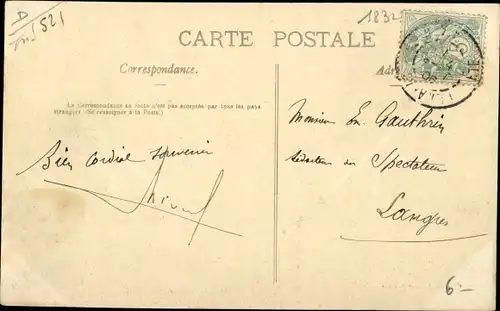 1832
CARTE POSTALE
Correspondance.
La Correspondance au recto n'est pas acceptée par tous les pays
étrangers (Se renseigner à la Poste.)
Bien cordial souvenir
Monsieur Em. Gauthrin
Rédacteur du Spectateur
Langres
6-